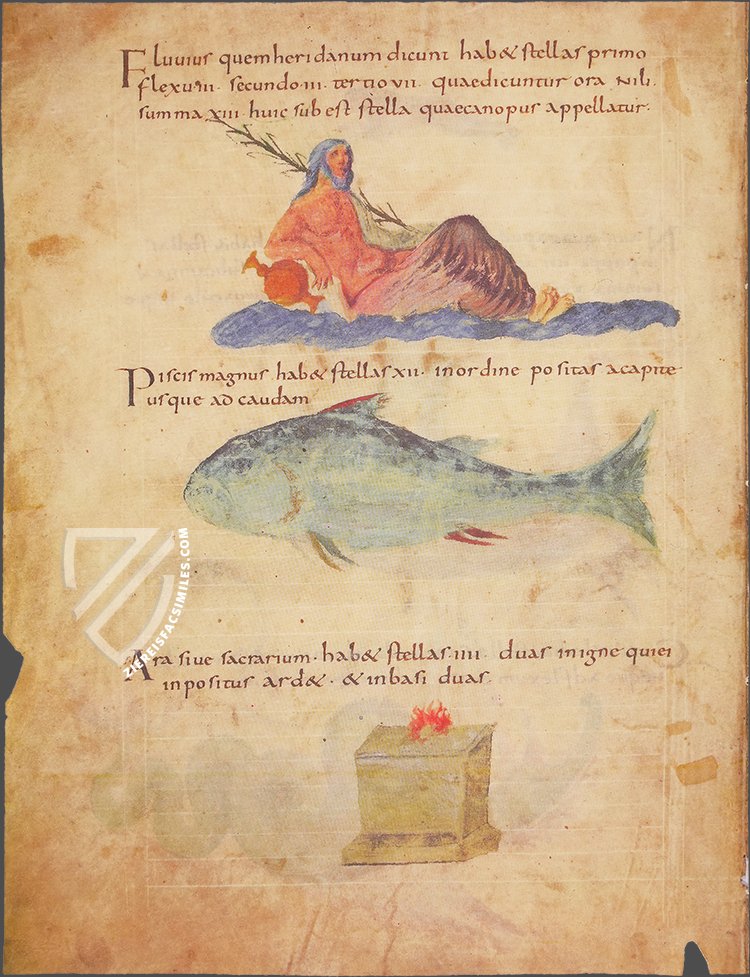 Fluvius quem heridanum dicunt hab& stellas primo
flexu iii · secundo iii · tertio vii · quae dicuntur ora Nili ·
summa xiii · huic sub est stella quae canopus appellatur ·
Piscis magnus · hab& stellas xii · in ordine positas a capite
usque ad caudam
ZIEREISFACSIMILES.COM
Ara sive sacrarium · hab& stellas · iiii · duas in igne qui ei
inpositus ard& · & in basi duas